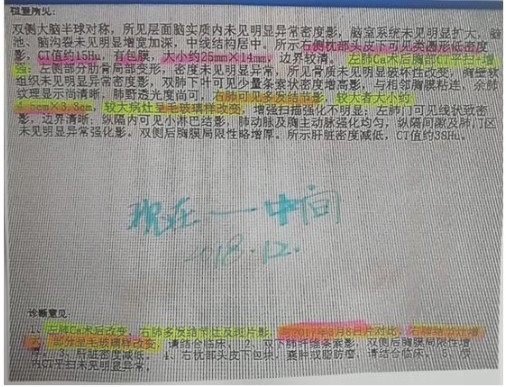 检查所见:
双侧大脑半球对称,所见层面脑实质内未见明显异常密度影,脑室系统未见明显扩大,脑
池、脑沟裂未见明显增宽加深,中线结构居中。所示右侧枕部头皮下可见类圆形低密度
影,CT值约15Hu,有包膜,大小约25mm×14mm,边界较清。左肺Ca术后胸部CT平扫+增
强:左侧部分肋骨局部变形,密度未见明显异常,所见骨质未见明显破坏性改变,胸壁软
组织未见明显异常密度影,双肺下叶可见少量条索状密度增高影,与相邻胸膜粘连,余肺
纹理显示尚清晰,肺野透光度尚可,右肺可见多发结节影,较大者大小约
cm×3.3cm,较大病灶呈毛玻璃样改变,增强扫描强化不明显;左肺门可见线状致密
影,边界清晰;纵隔内可见小淋巴结影,肺动脉及胸主动脉强化均匀,纵隔间隙及肺门区
未见明显异常强化影。双侧后胸膜局限性略增厚。所示肝脏密度减低,CT值约38Hu。
现在一中间
2018.12.
诊断意见:
1、左肺Ca术后改变,右肺多发结节及斑片影,与2017年8月8日片对比,右肺结节
部分呈毛玻璃样改变,请结合临床。2、双下肺纤维条索影,双侧后胸膜局限性增
厚。3、肝脏密度减低。4、右枕部头皮下包块,囊肿或脂肪瘤,请结合临床。5、颅
内CT平扫未见明显异常。